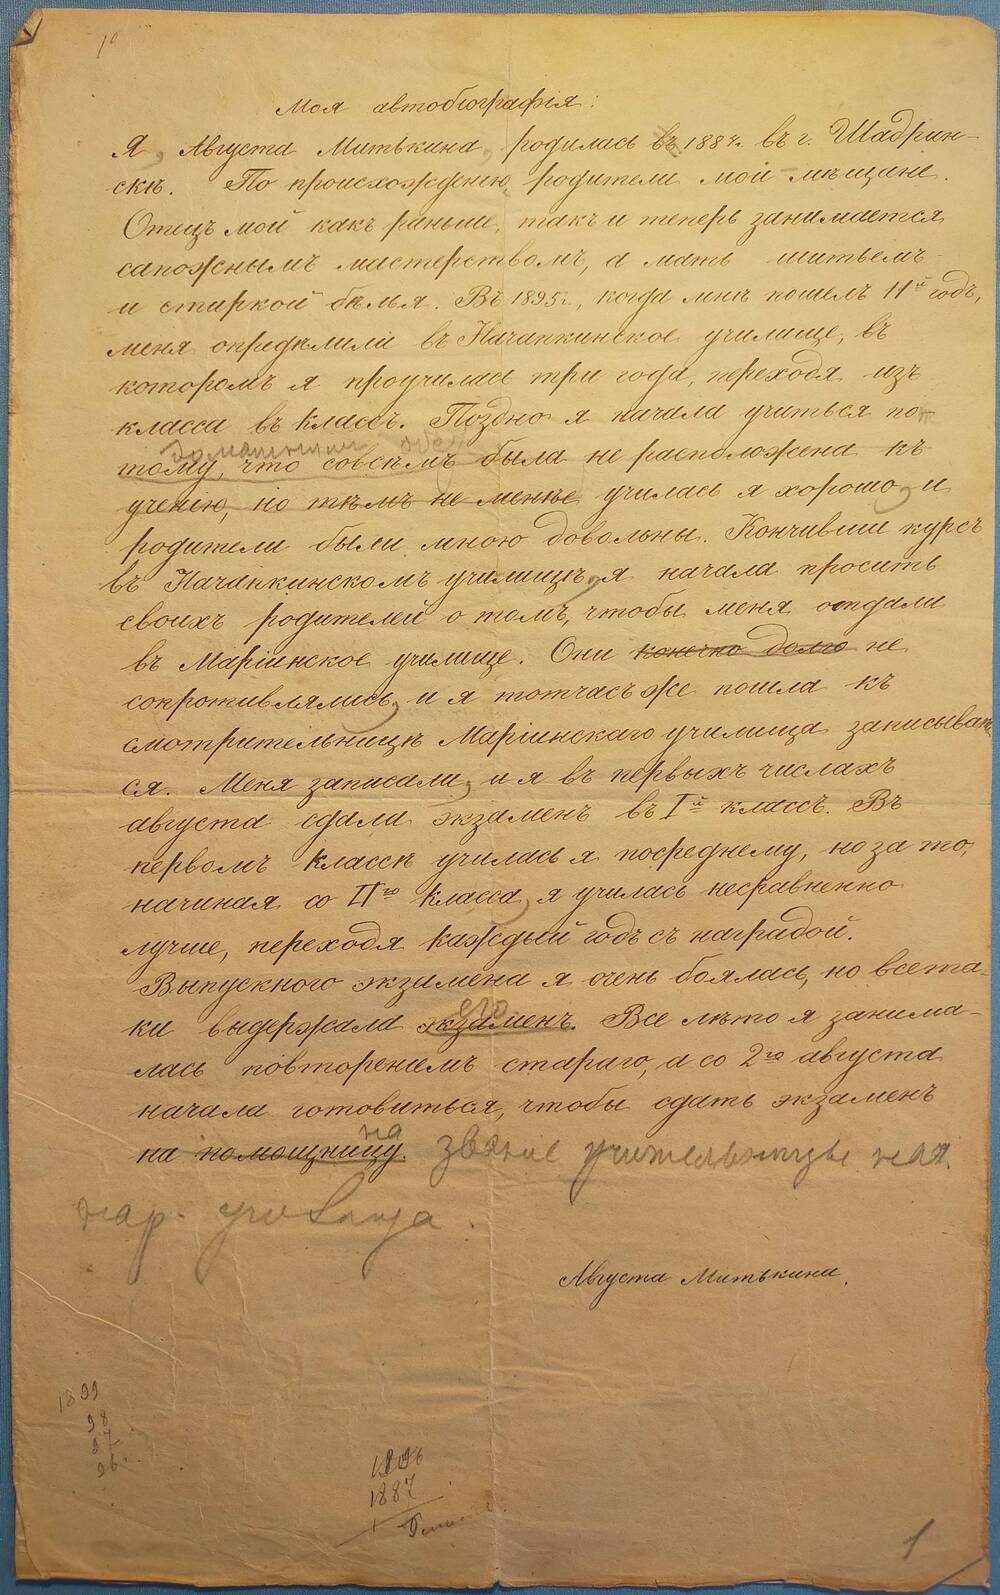 Моя автобіографія:
Я, Августа Митькина, родилась въ 1884г. въ г. Шадрин-
скѣ. По происхожденію родители мои мѣщане.
Отецъ мой какъ раньше, такъ и теперь занимается
сапожнымъ мастерствомъ, а мать шитьемъ
и стиркой бѣлья. Въ 1895г., когда мнѣ пошелъ 11й годъ,
меня опредѣлили въ Начапкинское училище, въ
которомъ я проучилась три года, переходя изъ
класса въ классъ. Поздно я начала учиться по
домашнимъ
тому, что совсѣмъ была не расположена къ
ученію, но тѣмъ не менѣе училась я хорошо, и
родители были мною довольны. Кончивши курсъ
въ Начапкинскомъ училищѣ, я начала просить
своихъ родителей о томъ, чтобы меня отдали
въ Маріинское училище. Они конечно долго не
сопротивлялись, и я тотчасъ же пошла къ
смотрительницѣ Маріинскаго училища записывать
ся. Меня записали, и я въ первыхъ числахъ
августа сдала экзаменъ въ Iй классъ. Въ
первомъ классѣ училась я посреднему, но за то,
начиная со IIго класса, я училась несравненно
лучше, переходя каждый годъ съ наградой.
Выпускного экзамена я очень боялась, но всета-
ки выдержала экзаменъ. его Все лѣто я занима-
лась повтореніемъ стараго, а со 2го августа
начала готовиться, чтобы сдать экзаменъ
на помощницу. на званіе учительницы нач.
нар. училища.
Августа Митькина.
1899
98
97
96.
1896
1887
1